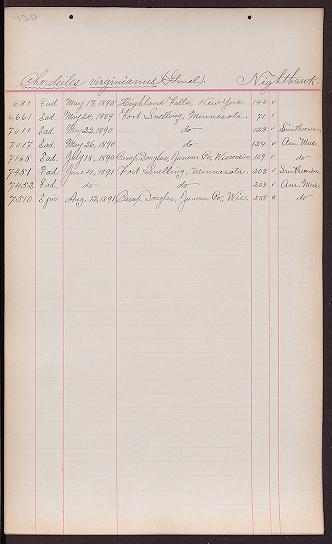 420
Chordeiles virginianus (Gmel). Nighthawk.
681 ♂ad. May 17, 1875 Highland Falls, New York. 146 v
6661 ♂ad. May 24, 1889 Fort Snelling, Minnesota. 71 v
7011 ♂ad. May 22, 1890 do 128 v Smithsonian
7017 ♂ad. May 26, 1890 do 124 v Am. Mus.
7165 ♂ad. July 18, 1890 Camp Douglas, Juneau Co, Wisconsin 169 v do
7451 ad. June 11, 1891 Fort Snelling, Minnesota. 208 v Smithsonian
7452 ad. do do 208 v Am. Mus.
7510 juv. Aug. 12, 1891 Camp Douglas, Juneau Co, Wis. 238 do